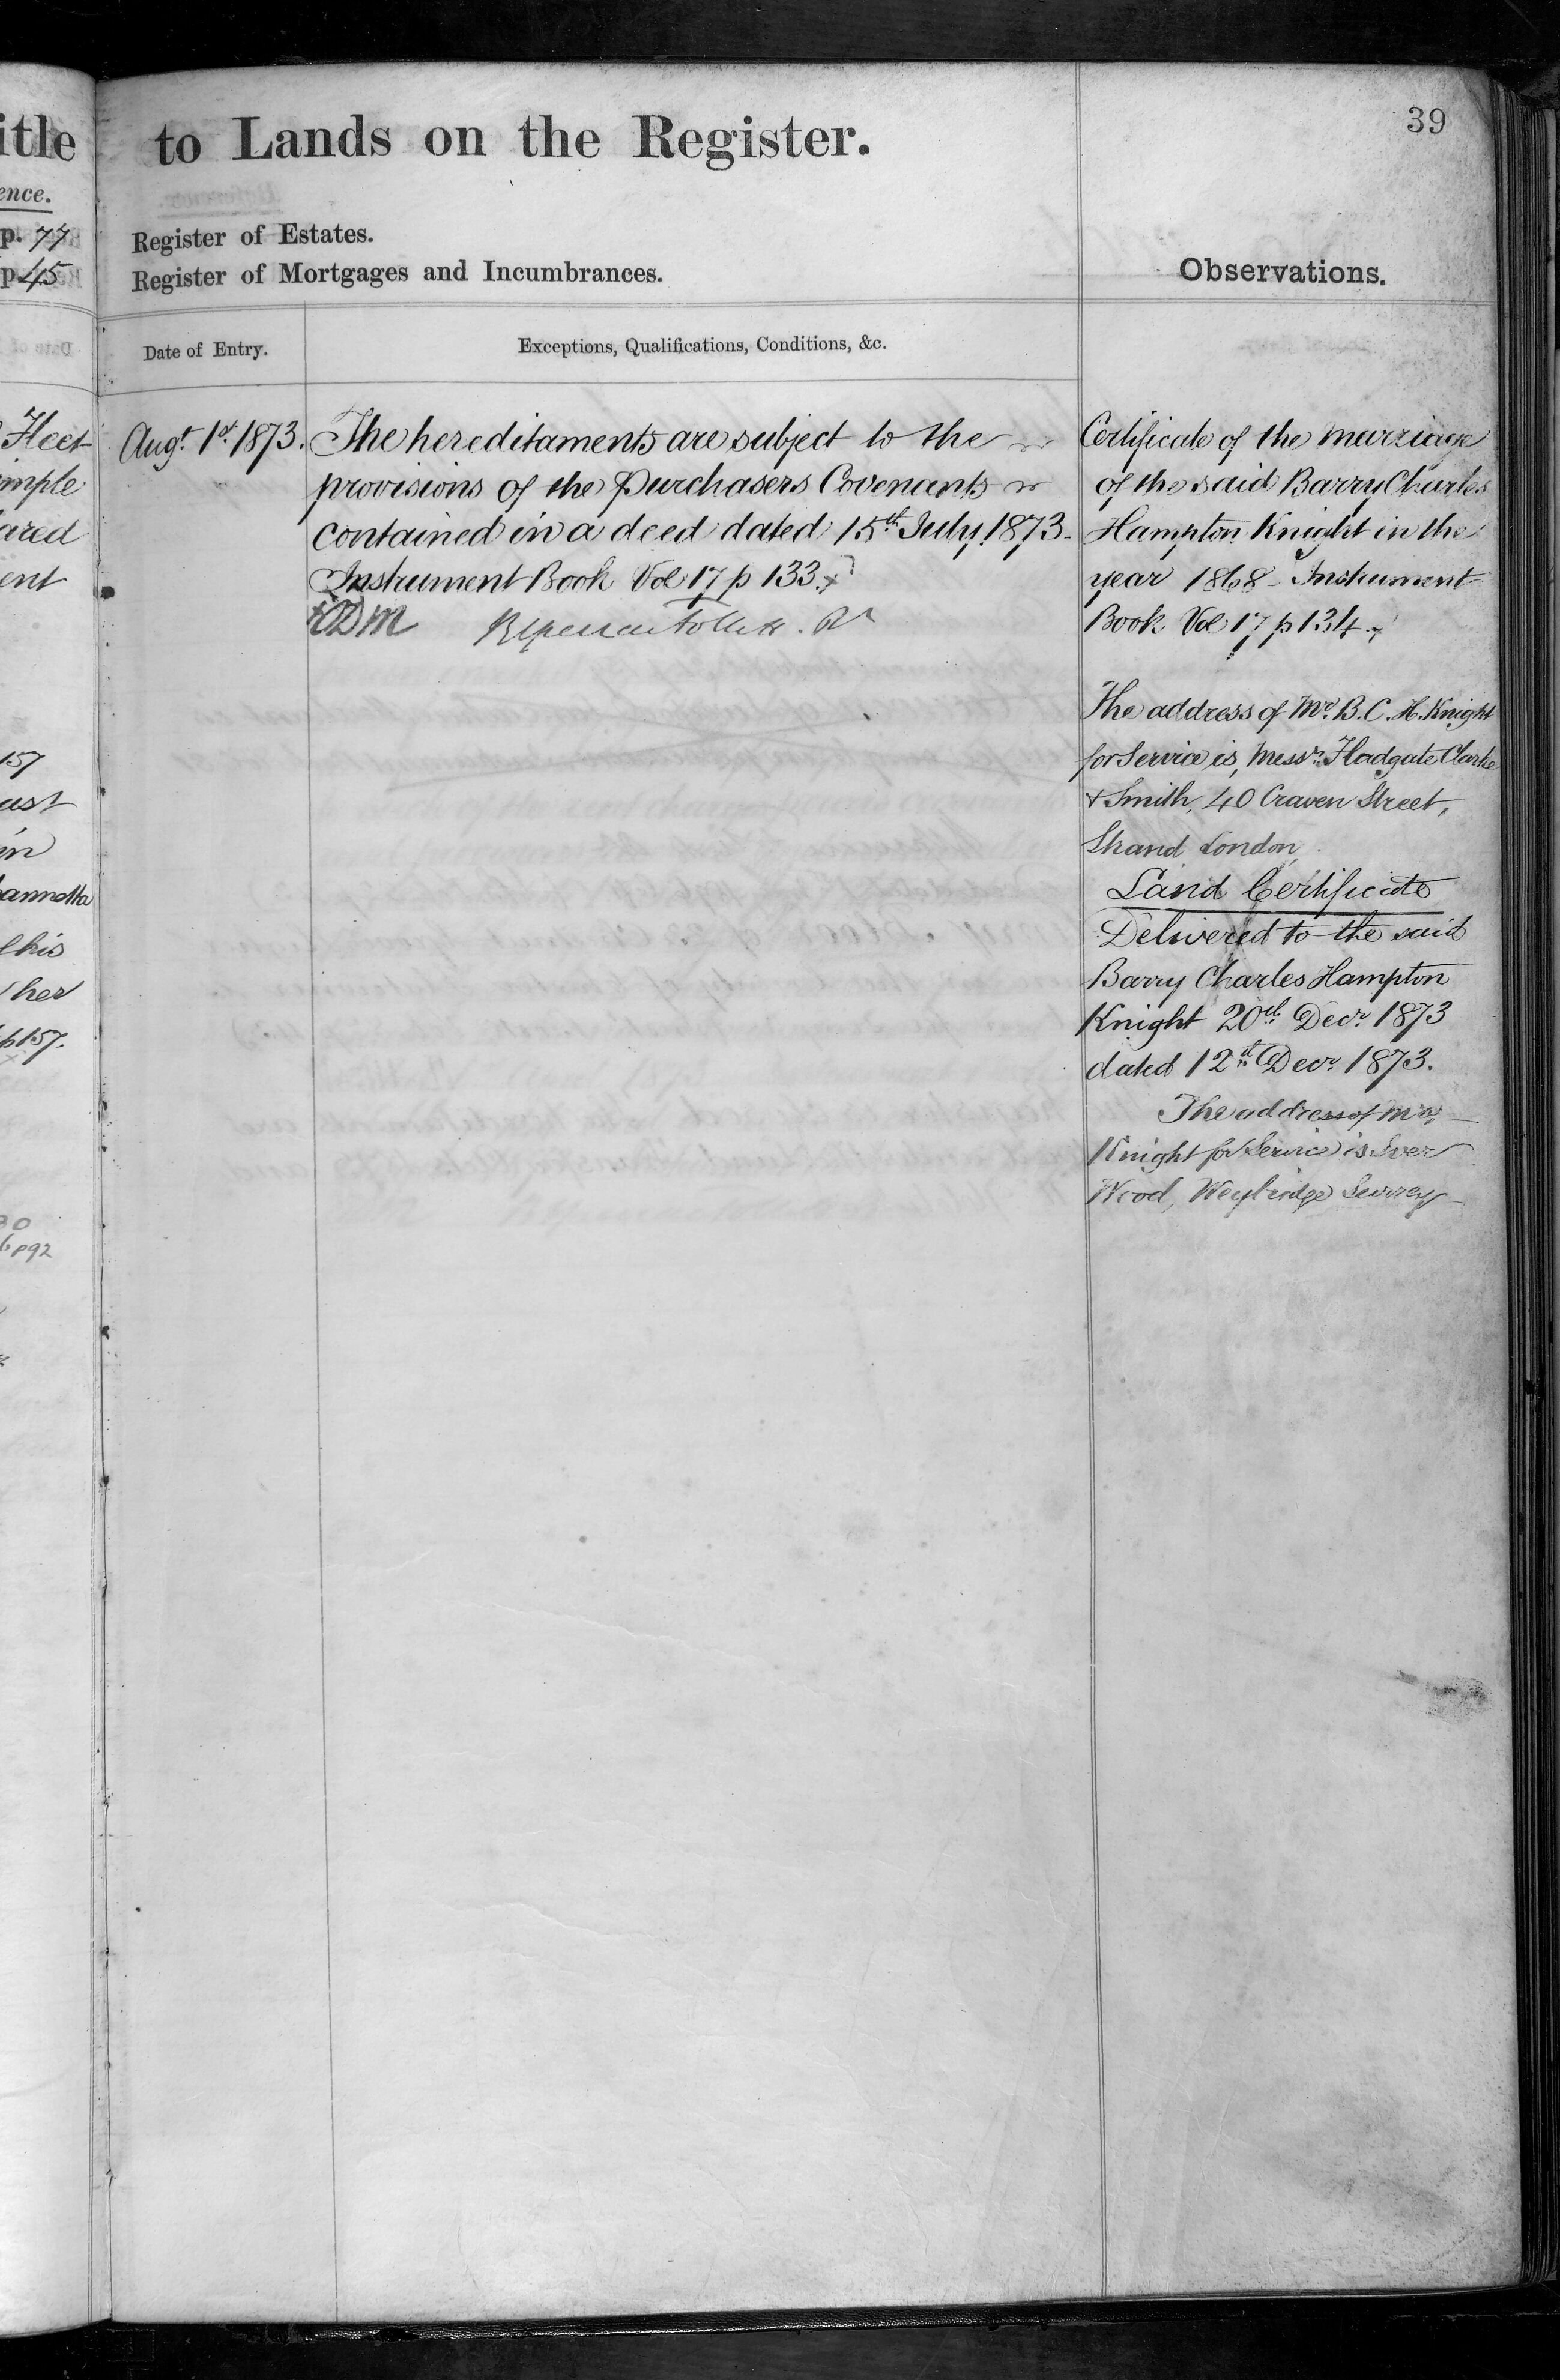 itle
ence.
p. 77
p. 45
Fleet
imple
ared
ent
157
ast
in
annetta
this
her
p157.
p92
to Lands on the Register.
39
Register of Estates.
Register of Mortgages and Incumbrances.
Observations.
Date of Entry.
Exceptions, Qualifications, Conditions, &c.
Augt. 1st. 1873.
The hereditaments are subject to the
provisions of the Purchasers Covenants
contained in a deed dated 15th July 1873-
Instrument Book Vol 17 p 133.x
Certificate of the marriage
of the said Barry Charles
Hampton Knight in the
year 1868 - Instrument
Book Vol 17 p 134.
The address of Mr. B. C. H. Knight
for Service is, Messrs. Fladgate Clarke
& Smith, 40 Craven Street,
Strand London,
Land Certificate
Delivered to the said
Barry Charles Hampton
Knight 20th Decr. 1873
dated 12th Decr. 1873.
The address of Mr.
Knight for Service is
Wood, Weybridge Surrey